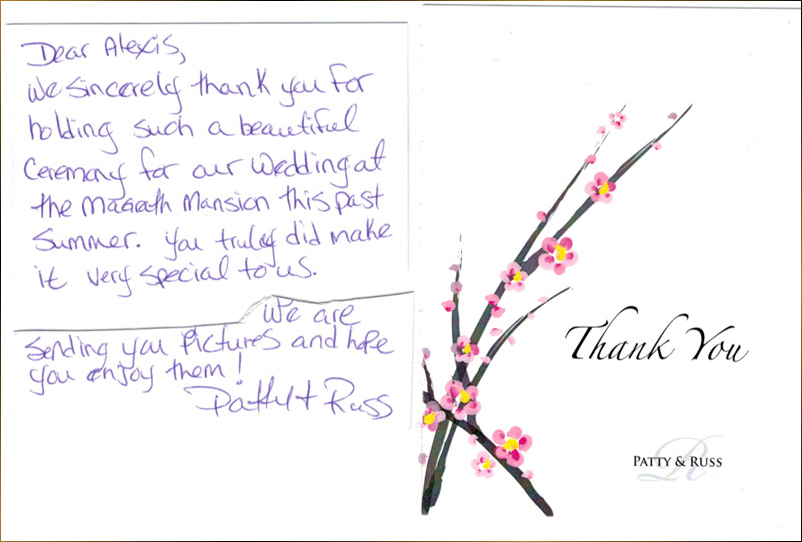 Dear Alexis,
We sincerely thank you for
holding such a beautiful
Ceremony for our Wedding at
the Magrath Mansion this past
Summer. You truly did make
it very special to us.
We are
Sending you Pictures and hope
you enjoy them!
Patty + Russ
Thank You
R
PATTY & RUSS